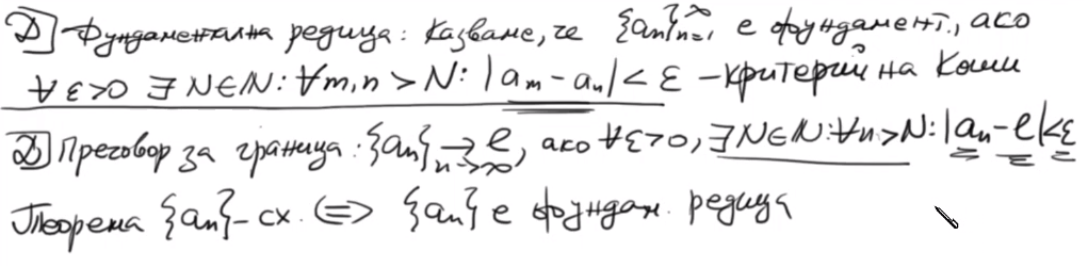 Д) Фундаментална редица: Казваме, че {aₙ}ₙ₌₁^∞ е фундамент., ако
∀ ε>0 ∃ N∈ℕ: ∀m,n > N: |aₘ - aₙ| < ε - критерий на Коши
Д) Преговор за граница: {aₙ} →ₙ→∞ l, ако ∀ε>0, ∃N∈ℕ: ∀n>N: |aₙ - l|<ε
Теорема {aₙ} - сх. ⟺ {aₙ} е фундам. редица